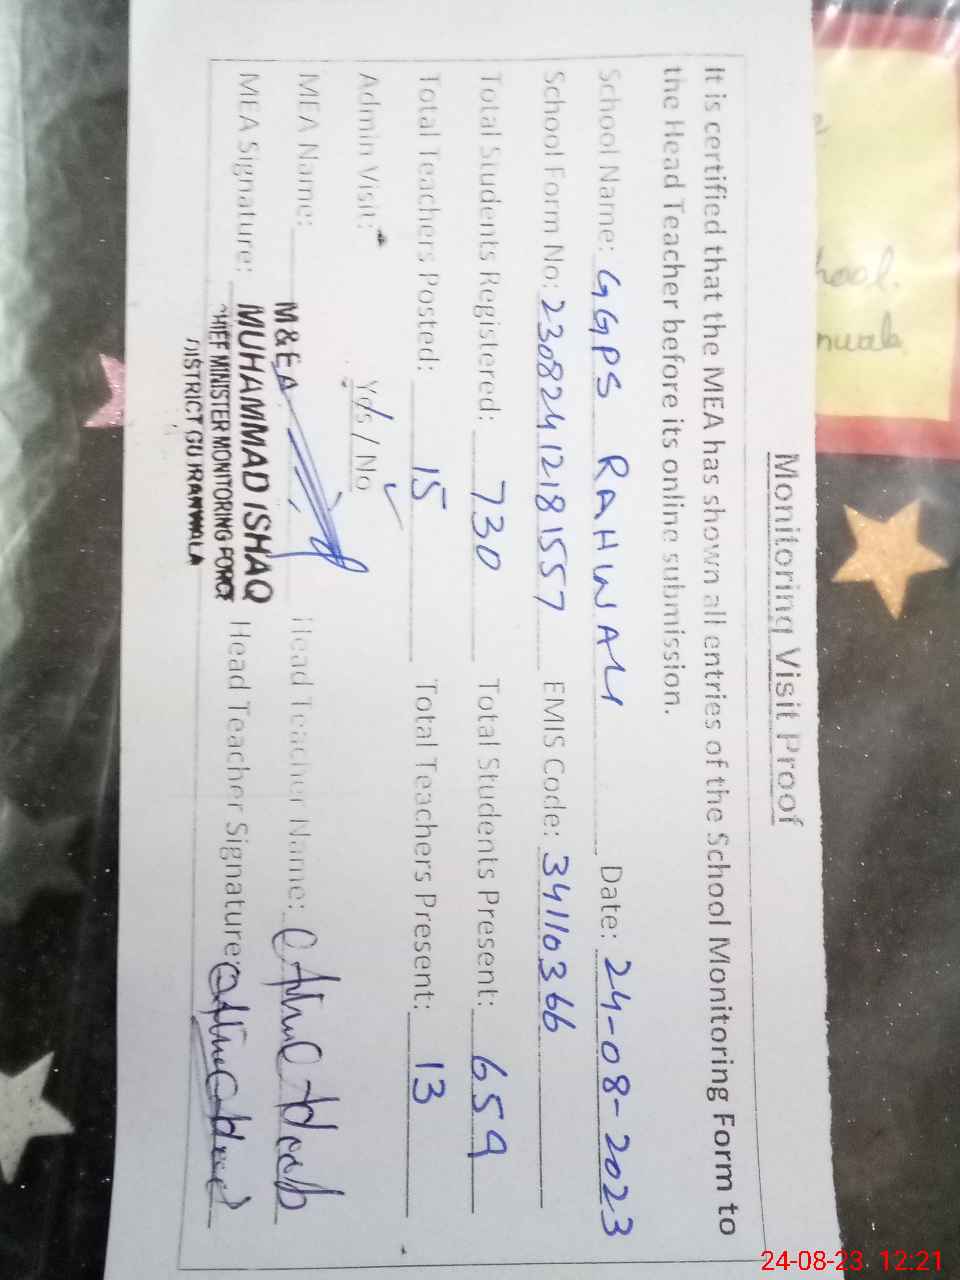 Monitoring Visit Proof
It is certified that the MEA has shown all entries of the School Monitoring Form to
the Head Teacher before its online submission.
School Name: GGPS RAHWALI Date: 24-08-2023
School Form No: 23082412181557 EMIS Code: 34110366
Total Students Registered: 730 Total Students Present: 659
Total Teachers Posted: 15 Total Teachers Present: 13
Admin Visit: Yes / No
MEA Name: Head Teacher Name:
MEA Signature: Head Teacher Signature:
M & EA
MUHAMMAD ISHAQ
CHIEF MINISTER MONITORING FORCE
DISTRICT GUJRANWALA
hool.
nuals
24-08-23 12:21